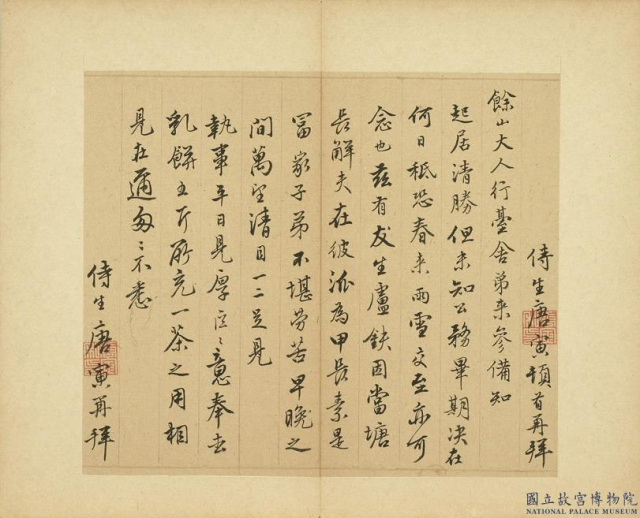 侍生唐寅頓首再拜
餘山大人行臺舍弟來參備知
起居清勝但未知公務畢期決在
何日秪恐春來雨雪交至亦可
念也茲有友生盧鈇因當塘
長解夫在彼派為甲長素是
富家子弟不堪勞苦早晚之
間萬望清目一二足見
執事平日見厚區〻意奉去
乳餅五斤所充一茶之用相
見在邇匆〻不悉
侍生唐寅再拜
國立故宮博物院
NATIONAL PALACE MUSEUM